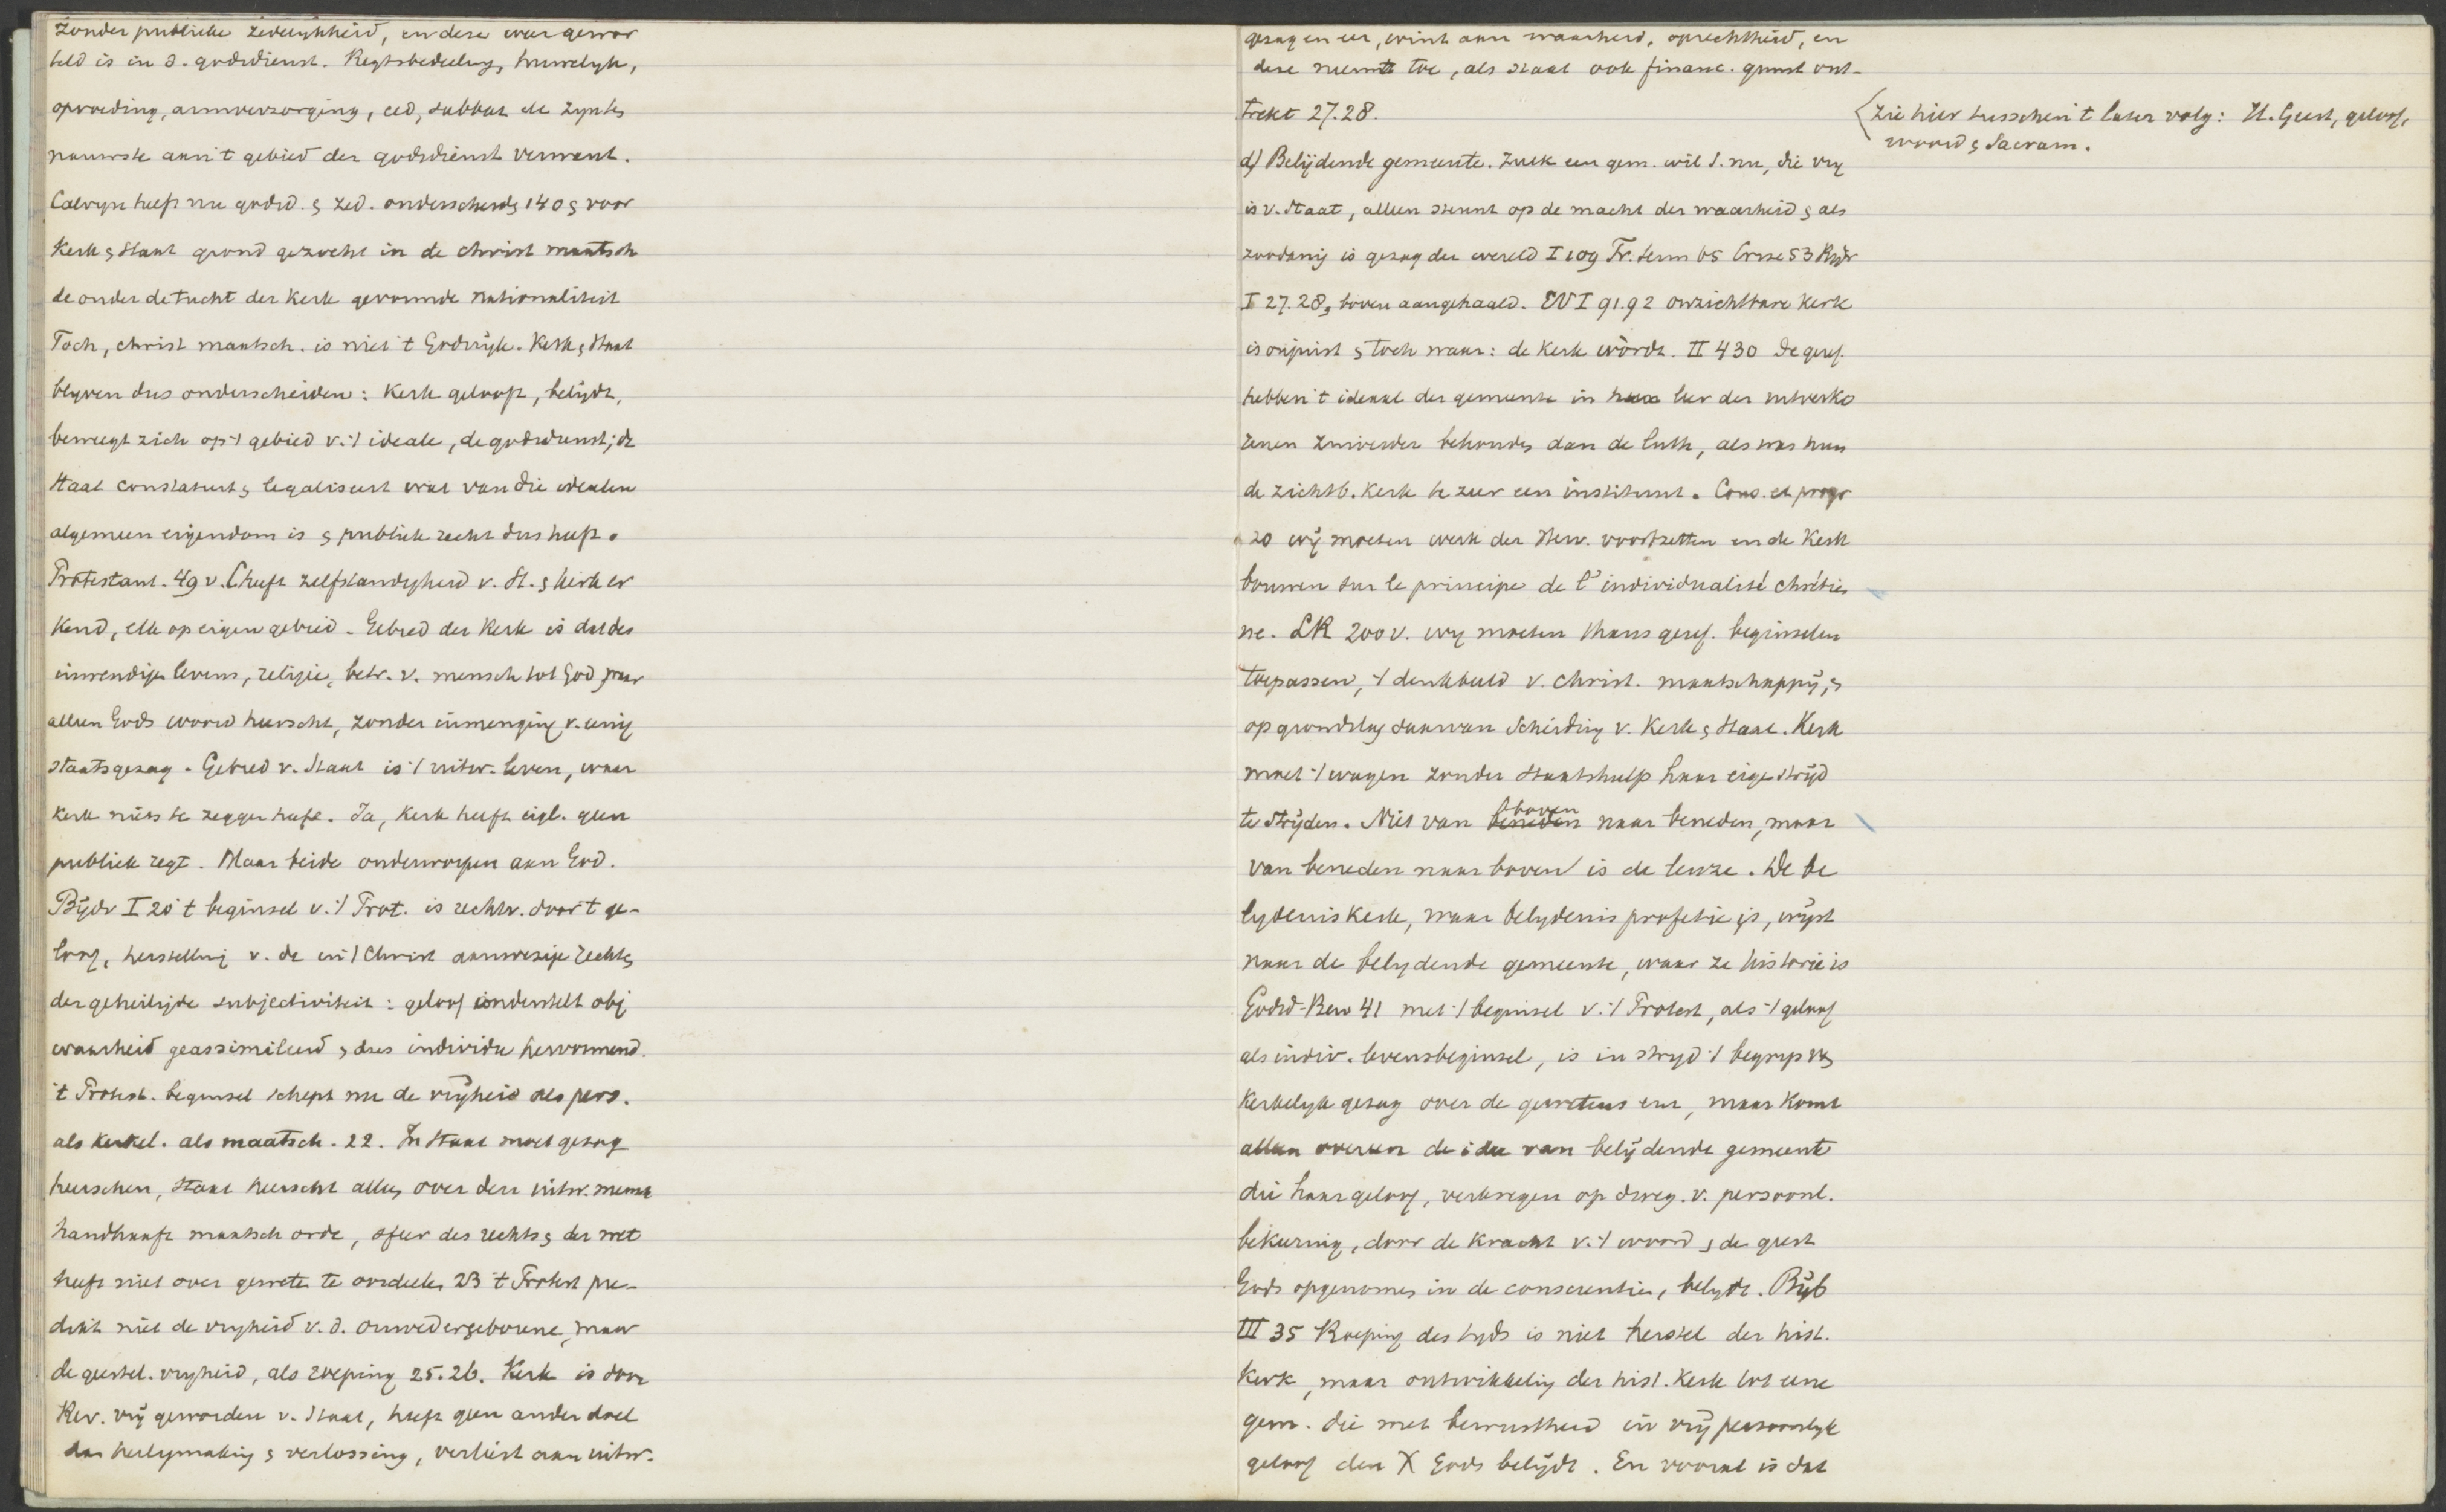 zonder publieke zedelykheid, en deze weer gewor
teld is in d. godsdienst. Regtsbedeeling, huwelyk,
opvoeding, armverzorging, eed, sabbat etc zyn ten
nauwste aan 't gebied der godsdienst verwant.
Calvyn heeft nu godsd. & zed. onderscheiden 140 & voor
Kerk & Staat grond gezocht in de christ maatsch
de onder de tucht der kerk gevormde nationaliteit
Toch, christ maatsch. is niet 't Godsryk. Kerk & Staat
blyven dus onderscheiden: Kerk gelooft, belijdt,
beweegt zich op 't gebied v. 't ideale, de godsdienst; de
Staat constateert & legaliseert wat van die idealen
algemeen eigendom is & publiek recht dus heeft.
Protestant. 49 v. C heeft zelfstandigheid v. St. & kerk er
kend, elk op eigen gebied. Gebied der Kerk is dat des
inwendige levens, religie, betr. v. mensch tot God, waar
alleen Gods woord heerscht, zonder inmenging v. eenig
staatsgezag. Gebied v. Staat is 't uitw. leven, waar
Kerk niets te zeggen heeft. Ja, Kerk heeft eigl. geen
publiek regt. Maar beide onderworpen aan God.
Bijdr I 20 't beginsel v. 't Prot. is rechtv. door 't ge-
loof, herstelling v. de in 't Christ aanwezige rechten
der geheiligde subjectiviteit: geloof onderstelt obj
waarheid geassimileerd, & dus individu hervormend.
't Protest. beginsel schept nu de vryheid als pers.
als kerkel. als maatsch. 22. In Staat moet gezag
heerschen, Staat heerscht alleen over den uitw. mensch
handhaaft maatsch orde, sfeer des rechts & der wet
heeft niet over geweten te oordeelen 23 't Protest pre-
dikt niet de vryheid v. d. onwedergeborene, maar
de geestel. vryheid, als roeping 25.26. Kerk is door
Rev. vrij geworden v. Staat, heeft geen ander doel
dan heiligmaking & verlossing, verliest aan uitw.
gezag en eer, wint aan waarheid, oprechtheid, en
deze neemt toe, als Staat ook financ. gunst ont-
trekt 27.28.
d) Belijdende gemeente. Zulk een gem. wil S. nu, die vry
is v. Staat, alleen steunt op de macht der waarheid & als
zoodanig is gezag der wereld I 109 Tr. Serm 65 Crise 53 Bijdr
I 27.28, boven aangehaald. EV I 91.92 onzichtbare kerk
is onjuist & toch waar: de kerk wordt. II 430 De geref.
hebben 't ideaal der gemeente in haar leer der uitverko
renen zuiverder behouden dan de luth, als was hun
de zichtb. kerk te zeer een instituut. Cons. et progr
20 wij moeten werk der Herv. voortzetten en de Kerk
bouwen sur le principe de l'individualité chrétien
ne. LR 200 v. wij moeten thans geref. beginselen
toepassen, 't denkbeeld v. christ. maatschappij, &
op grondslag daarvan Scheiding v. Kerk & Staat. Kerk
moet 't wagen zonder Staatshulp haar eigen strijd
te strijden. Niet van boven naar beneden, maar
van beneden naar boven is de leuze. De be
lydenis kerk, waar belydenis profetie is, wijst
naar de belydende gemeente, waar ze historie is
Godsd-Bew 41 met 't beginsel v. 't Protest, als 't geloof
als indiv. levensbeginsel, is in stryd 't begryp v
kerkelyk gezag over de gewetens een, maar komt
alleen overeen de idee van belijdende gemeente
die haar geloof, verkregen op d. weg. v. persoonl.
bekeering, door de kracht v. 't woord & de geest
Gods opgenomen in de conscientie, belydt. Bijb
III 35 Roeping des tyds is niet herstel der hist.
Kerk, maar ontwikkeling der hist. Kerk tot eene
gem. die met bewustheid in vrij persoonlyk
geloof den X Gods belijdt. En vooral is dat
Zie hier tusschen 't later volg: H. Geest, geloof,
woord & Sacram.